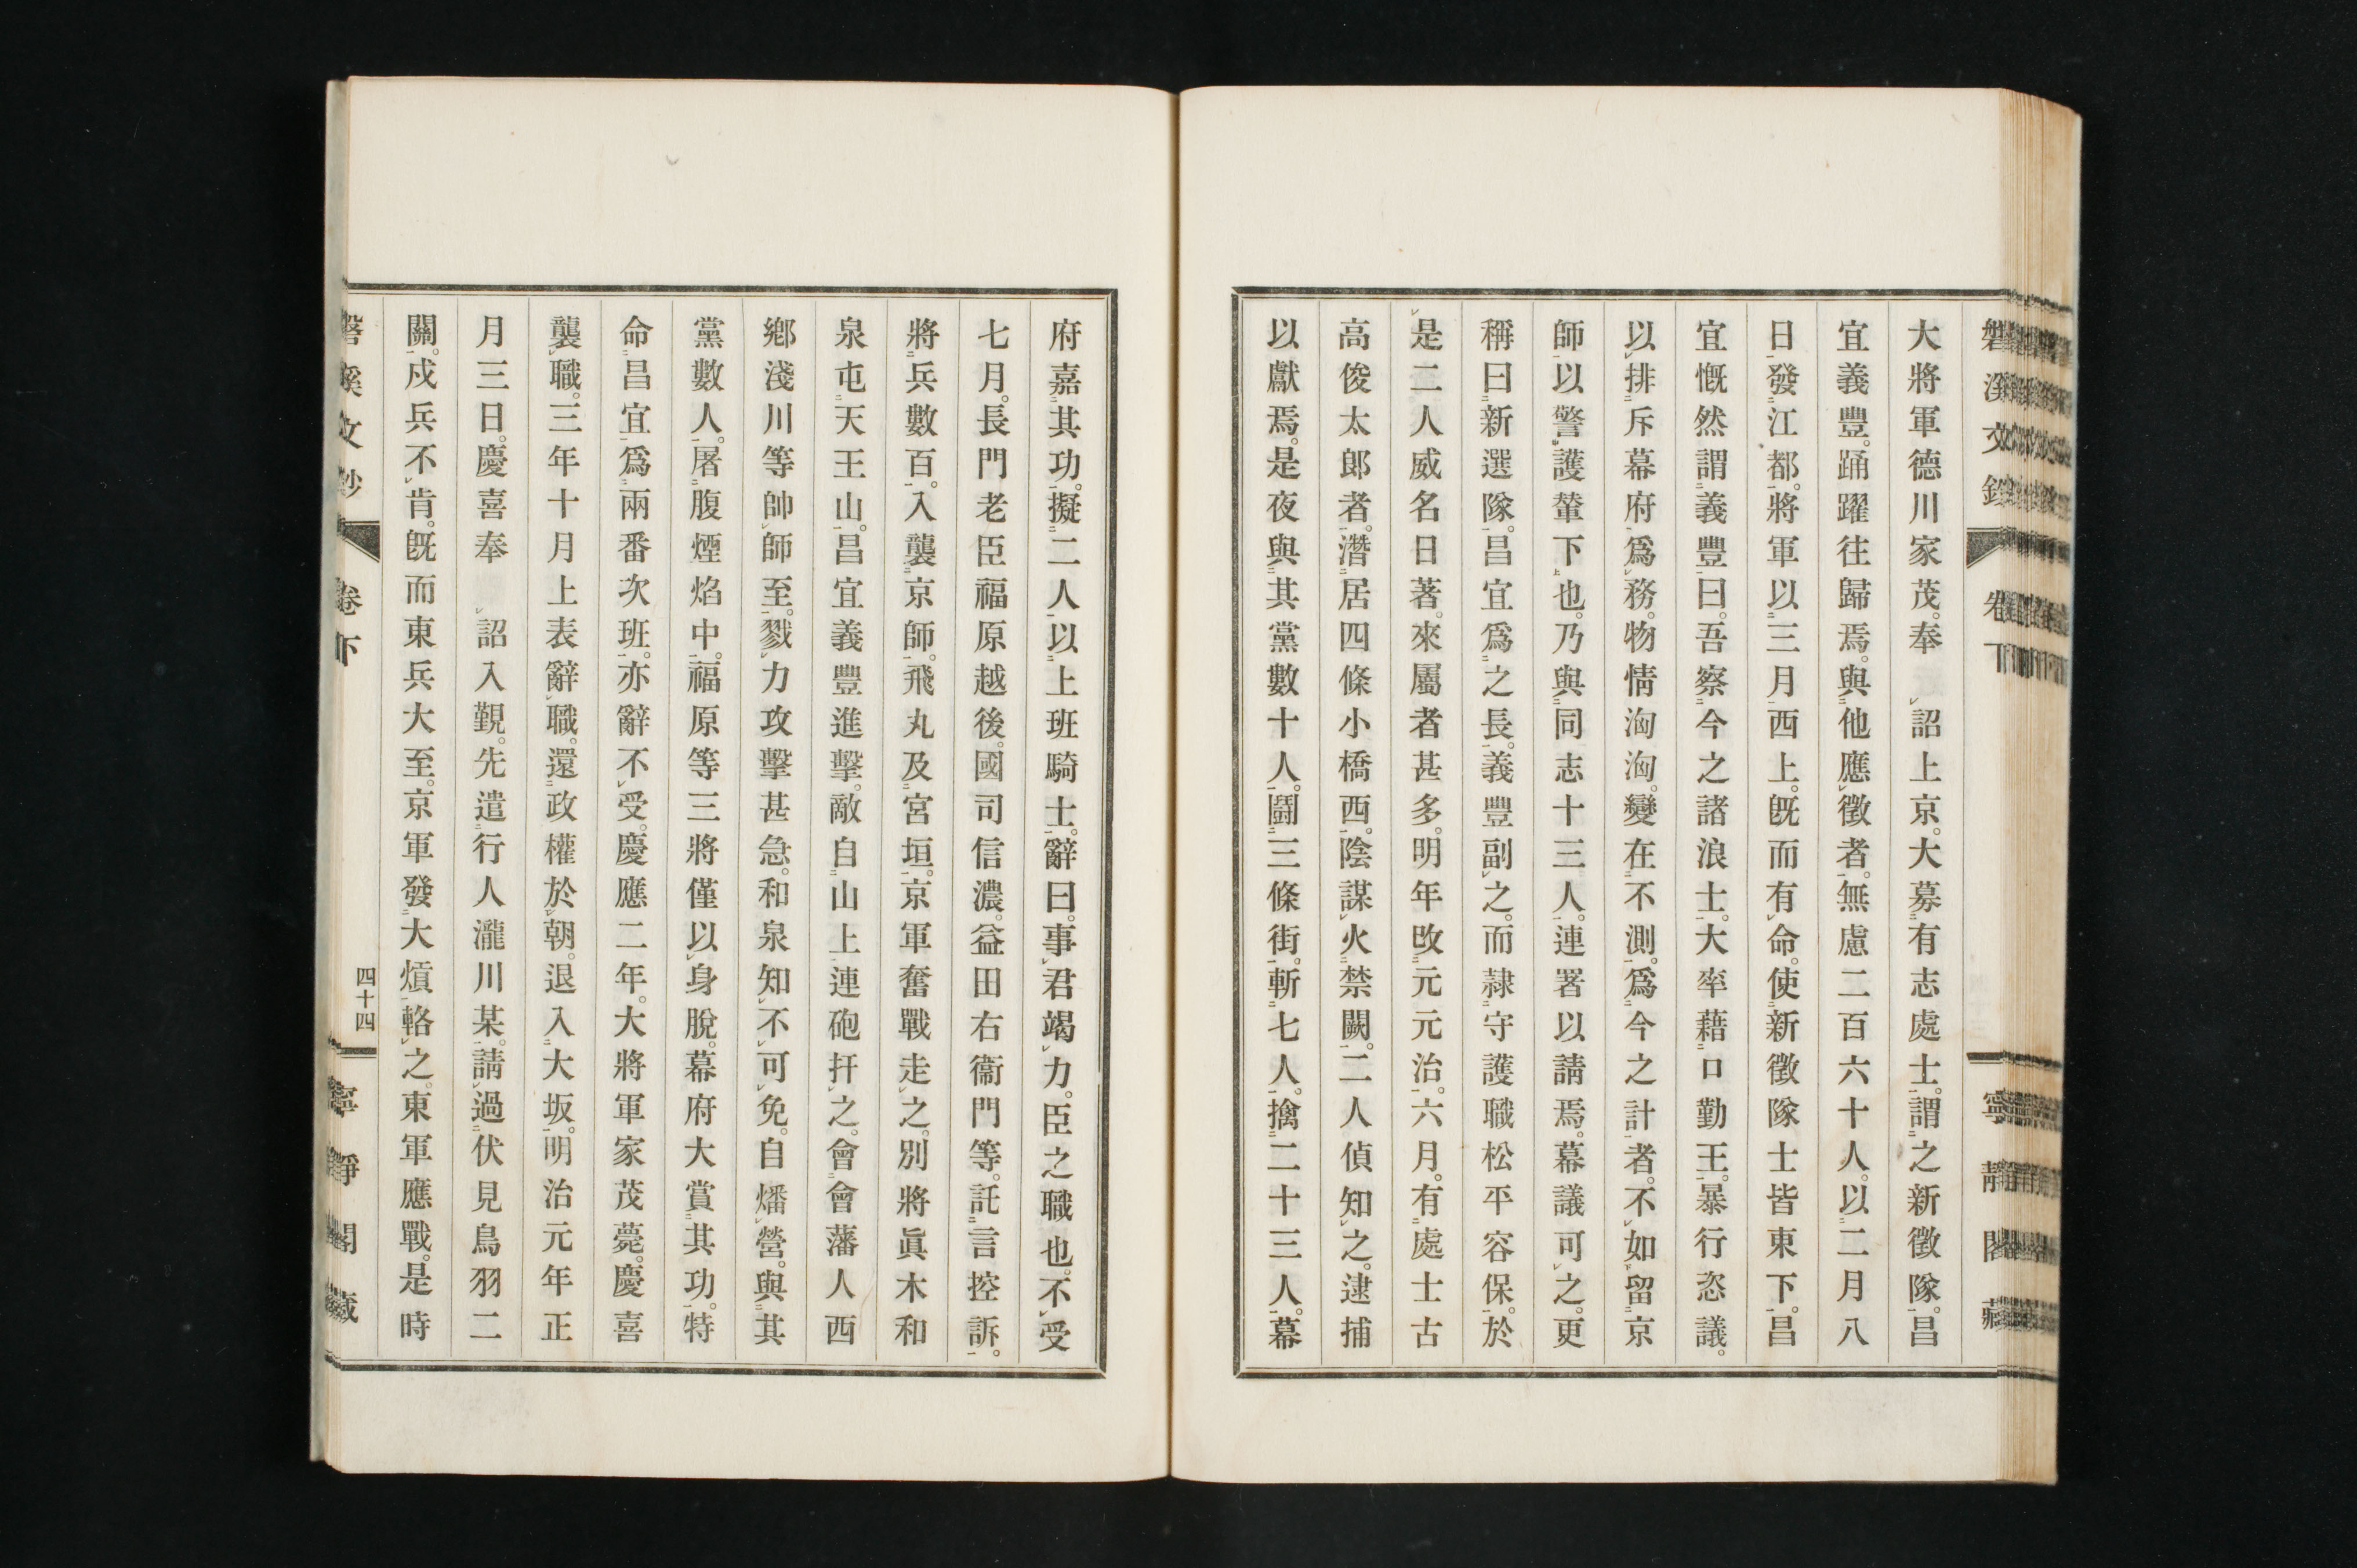 大將軍德川家茂。奉　詔上京。大募有志處士。謂之新徵隊。昌
宜義豐。踊躍往歸焉。與他應徵者。無慮二百六十人。以二月八
日發江都。將軍以三月西上。旣而有命。使新徵隊士皆東下。昌
宜慨然謂義豐曰。吾察今之諸浪士。大率藉口勤王。暴行恣議。
以排斥幕府爲務。物情洶洶。變在不測。爲今之計者。不如留京
師以警護輦下也。乃與同志十三人。連署以請焉。幕議可之。更
稱曰新選隊。昌宜爲之長。義豐副之。而隷守護職松平容保。於
是二人威名日著。來屬者甚多。明年改元元治。六月。有處士古
高俊太郎者。潛居四條小橋西。陰謀火禁闕。二人偵知之。逮捕
以獻焉。是夜與其黨數十人。鬪三條街。斬七人。擒二十三人。幕
府嘉其功。擬二人以上班騎士。辭曰。事君竭力。臣之職也。不受
七月。長門老臣福原越後。國司信濃。益田右衞門等。託言控訴。
將兵數百。入襲京師。飛丸及宮垣。京軍奮戰走之。別將眞木和
泉屯天王山。昌宜義豐進擊。敵自山上連砲扞之。會會藩人西
鄕淺川等帥師至。戮力攻擊甚急。和泉知不可免。自燔營。與其
黨數人。屠腹煙焰中。福原等三將僅以身脫。幕府大賞其功。特
命昌宜爲兩番次班。亦辭不受。慶應二年。大將軍家茂薨。慶喜
襲職。三年十月上表辭職。還政權於朝。退入大坂。明治元年正
月三日。慶喜奉　詔入覲。先遣行人瀧川某。請過伏見鳥羽二
關。戍兵不肯。旣而東兵大至。京軍發大熕輅之。東軍應戰。是時
卷下
四十四